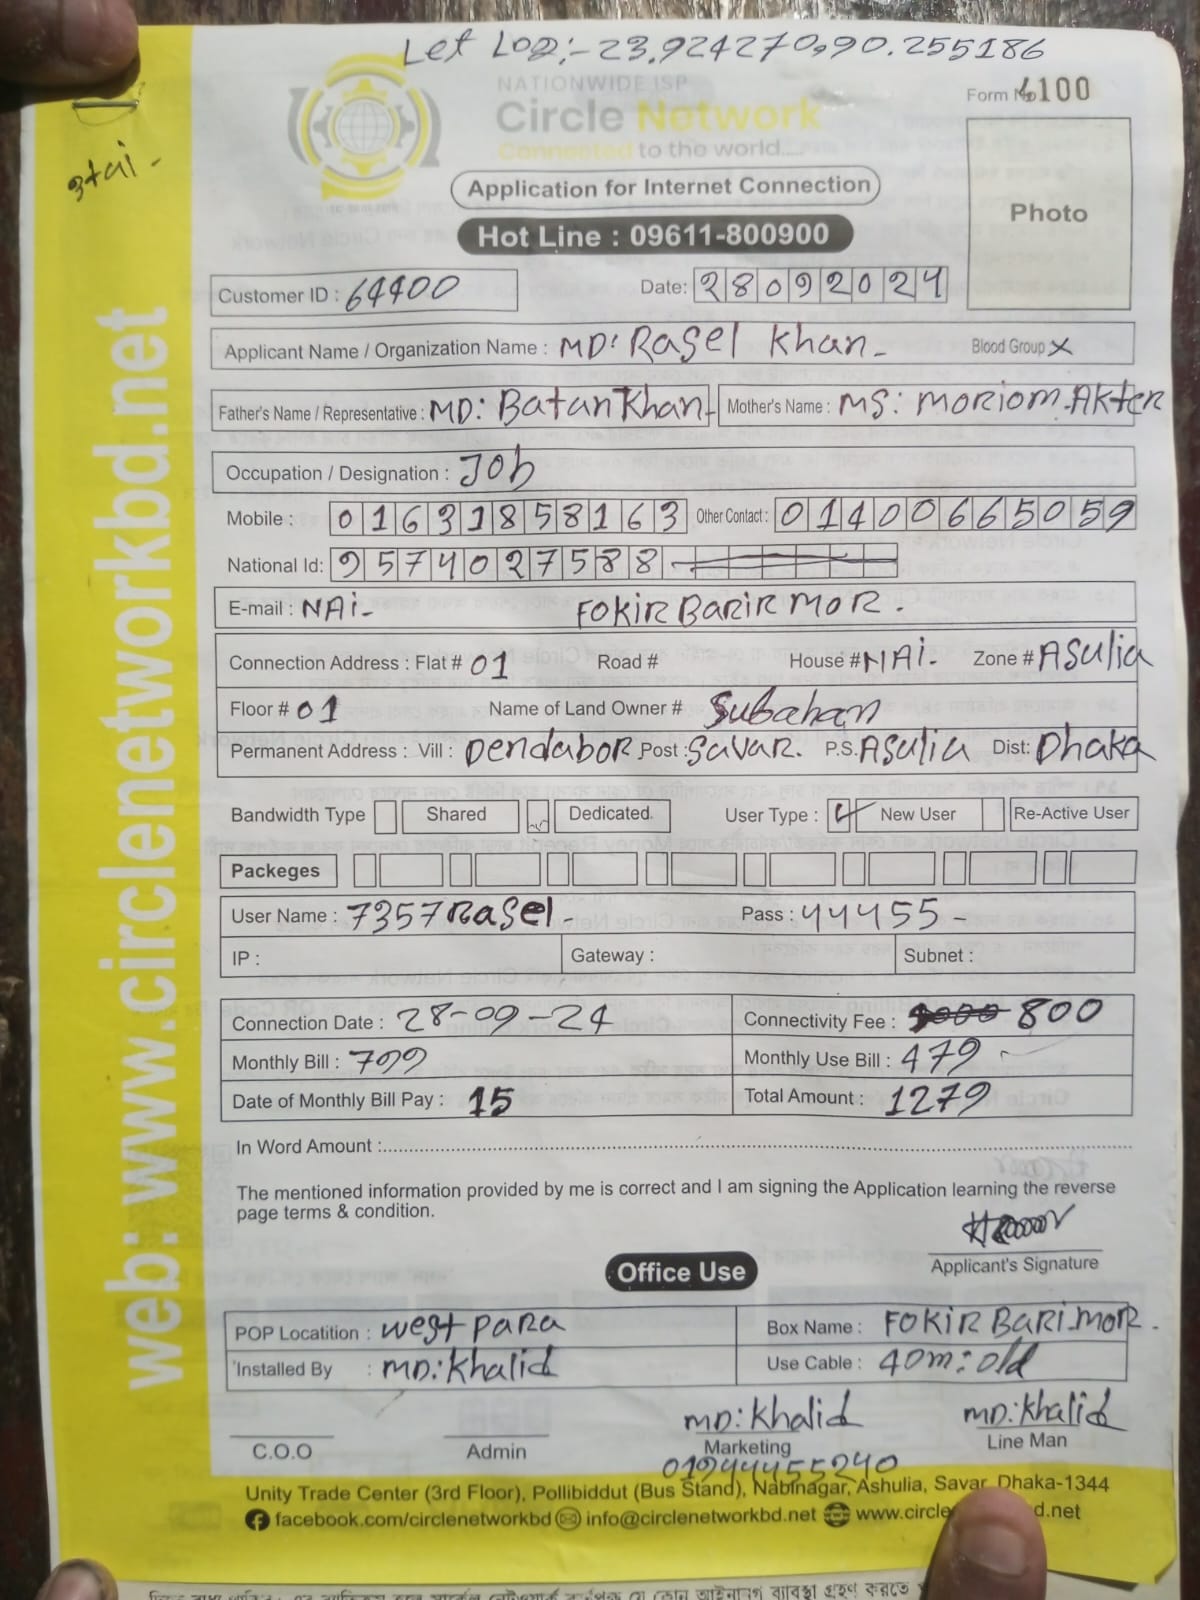 Let Log:-23.924270,90.255186
NATIONWIDE ISP
Circle Network
Connected to the world.....
Form No 4100
Photo
Application for Internet Connection
Hot Line : 09611-800900
Customer ID : 64400
Date: 28092024
Applicant Name / Organization Name : MD: Rasel Khan- Blood Group X
Father's Name / Representative : MD: Batan Khan- Mother's Name : MS: MORIOM.AKter
Occupation / Designation : Job
Mobile : 01631858163 Other Contact : 01400665059
National Id: 9574027588
E-mail : NAi- FOKIR BARIR MOR.
Connection Address : Flat # 01 Road # House # NAi- Zone # ASulia
Floor # 01 Name of Land Owner # Subahan
Permanent Address : Vill : DendaboR Post : SavaR. P.S. ASulia Dist: Dhaka
Bandwidth Type Shared Dedicated User Type : New User Re-Active User
Packeges
User Name : 7357Rasel- Pass : 44455-
IP : Gateway : Subnet :
Connection Date : 28-09-24 Connectivity Fee : 1000 800
Monthly Bill : 799 Monthly Use Bill : 479
Date of Monthly Bill Pay : 15 Total Amount : 1279
In Word Amount :
The mentioned information provided by me is correct and I am signing the Application learning the reverse
page terms & condition.
Applicant's Signature
Office Use
POP Locatition : west paRa Box Name : FOKIR BARI.MOR.
Installed By : MD: Khalid Use Cable : 40m: old
MD: Khalid MD: Khalid
C.O.O Admin Marketing Line Man
01944455240
Unity Trade Center (3rd Floor), Pollibiddut (Bus Stand), Nabinagar, Ashulia, Savar, Dhaka-1344
facebook.com/circlenetworkbd info@circlenetworkbd.net www.circle d.net
web: www.circlenetworkbd.net